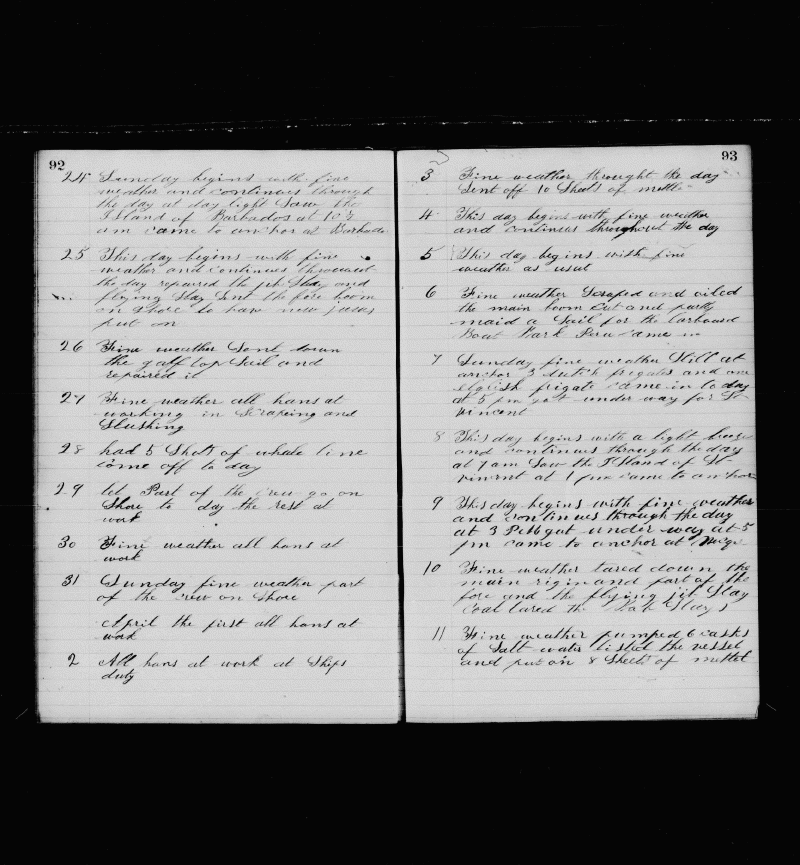 92
24 Sunday begins with fine
weather and continues through
the day at day light Saw the
ISland of Barbados at 10
am came to anchor at Barbado
25 This day begins with fine
weather and continues throuout
the day repaired the jib Stay and
flying Stay Sent the fore boom
on Shore to have new jaws
put on
26 Fine weather Sent down
the gaff top Sail and
repaired it
27 Fine weather all hans at
working in Scrapeing and
Slushing
28 had 5 Shots of whale line
come off to day
29 let Part of the crew go on
Shore to day the rest at
work
30 Fine weather all hans at
work
31 Sunday fine weather part
of the crew on Shore
April the first all hans at
work
2 All hans at work at Ships
duty
93
3 Fine weather throught the day
Sent off 10 Sheets of mettle
4 This day begins with fine weather
and continues throughout the day
5 This day begins with fine
weather as usul
6 Fine weather Scraped and oiled
the main boom Cut and partly
maid a Sail for the larboard
Boat Bark Peru came in
7 Sunday fine weather Still at
anchor 3 dutch frigates and one
english frigate came in to day
at 5 pm got under way for St
Vincent
8 This day begins with a light breeze
and continues through the day
at 7 am Saw the ISland of St
vincent at 1 pm came to anchor
9 This day begins with fine weather
and continues through the day
at 3 got under way at 5
pm came to anchor at
10 Fine weather tared down the
main rigin and part of the
fore and the flying jib Stay
Coal tared the Stays
11 Fine weather pumped 6 casks
of Salt water listed the vessel
and put on 8 Sheets of mettel